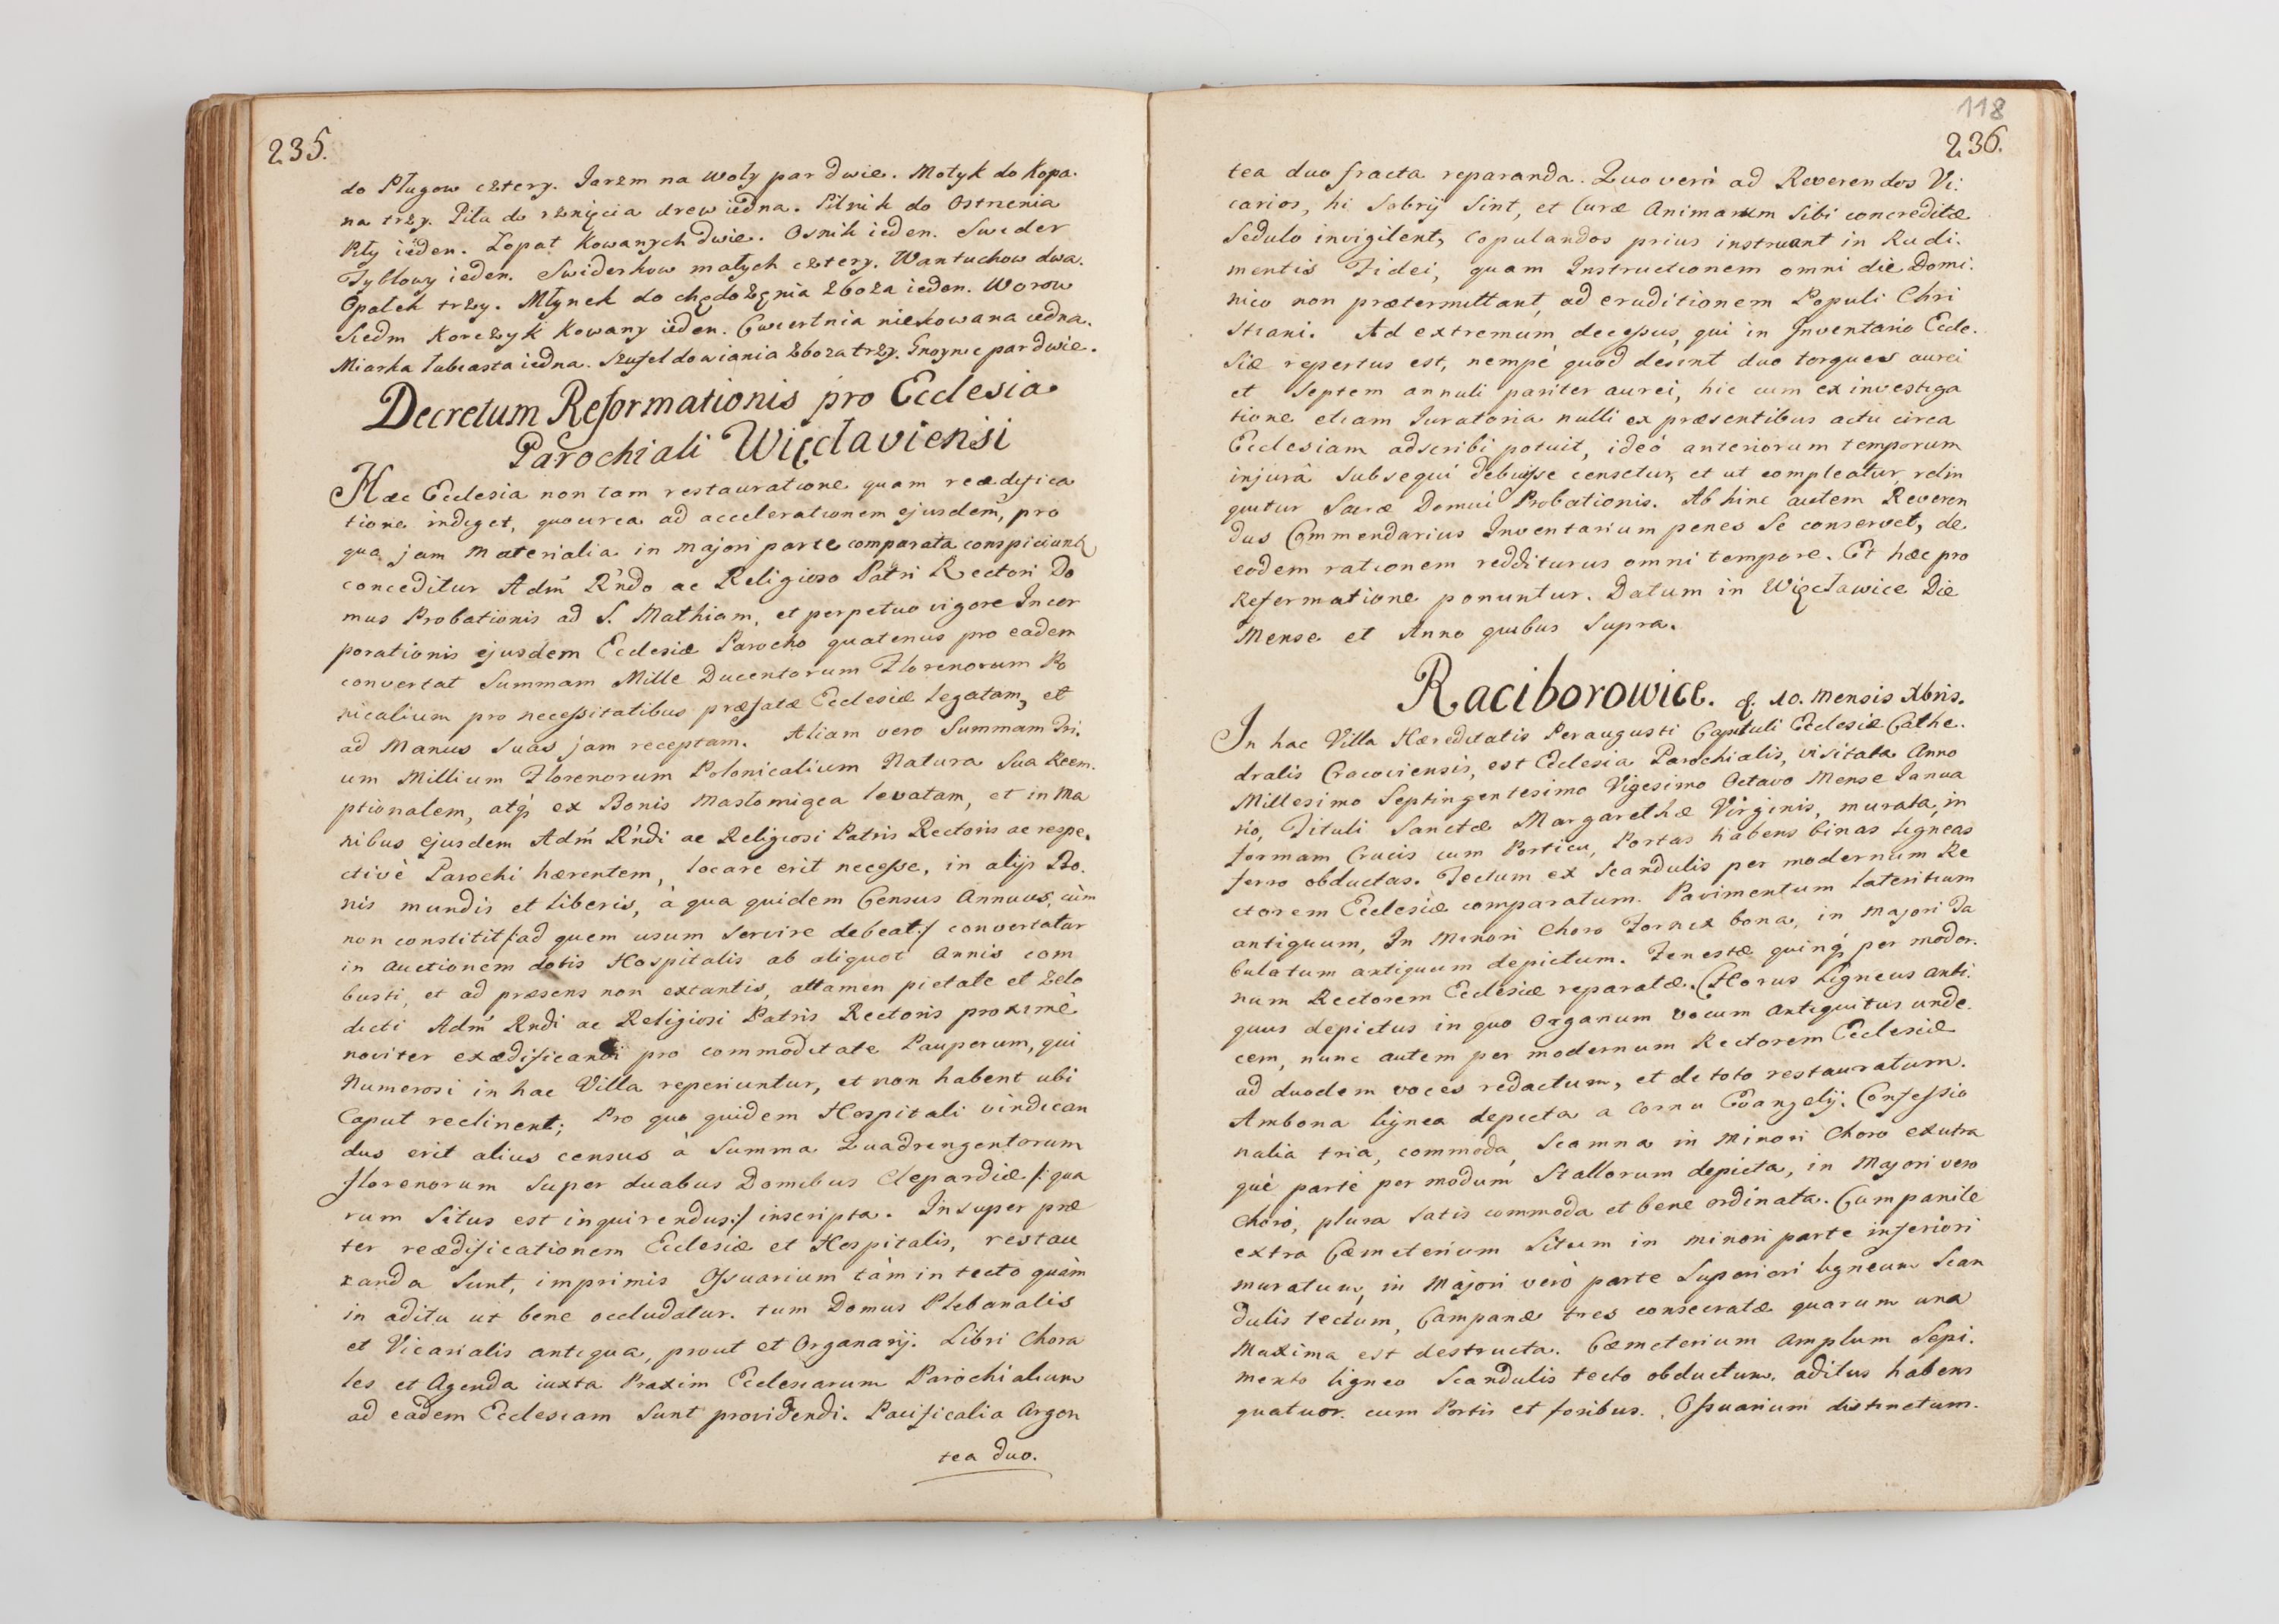 235.
do Pługow cztery. Jarzm na woły par dwie. Motyk do Kopa.
na trzy. Piła do rznięcia drew iedna. Pilnik do Ostrzenia
Piły ieden. Łopat Kowanych dwie. Osnik ieden. Swider
Tyblowy ieden. Swiderkow małych cztery. Wantuchow dwa.
Opałek trzy. Młynek do chędożęnia zboza ieden. Worow
Siedm Korczyk Kowany ieden. Cwiertnia niekowana iedna.
Miarka łubiasta iedna. Szufel do wiania zboza trzy. Gnoynic par dwie.
Decretum Reformationis pro Ecclesia
Parochiali Więclaviensi
Hæc Ecclesia non tam restauratione quam reædifica
tione indiget, quocirca ad accelerationem ejusdem, pro
qua jam Materialia in majori parte comparata conspiciunt
conceditur Adm̃ R̃ndo ac Religioso Patri Rectori Do
mus Probationis ad S. Mathiam, et perpetuo vigore Incor
porationis ejusdem Ecclesiæ Parocho quatenus pro eadem
convertat Summam Mille Ducentorum Florenorum Po
nicalium pro necessitatibus præfatæ Ecclesiæ legatam, et
ad Manus Suas jam receptam. Aliam vero Summam Tri.
um Millium Florenorum Polonicalium Natura Sua Reem.
ptionalem, atq́ ex Bonis Masłomiąca levatam, et in Ma
nibus ejusdem Adm̃ R̃ndi ac Religiosi Patris Rectoris ac respe.
ctivè Parochi hærentem, locare erit necesse, in alijs Bo.
nis mundis et liberis, à qua quidem Census Annuus, cùm
non constitit /:ad quem usum servire debeat:/ convertatur
in Auctionem dotis Hospitalis ab aliquot Annis com
busti, et ad præsens non extantis, attamen pietate et zelo
dicti Adm̃ Rndi ac Religiosi Patris Rectoris proximè
noviter exædificandi pro commoditate Pauperum, qui
Numerosi in hac Villa reperiuntur, et non habent ubi
Caput reclinent; Pro quo quidem Hospitali vindican
dus erit alius census à Summa Quadringentorum
florenorum Super duabus Domibus Clepardiæ /:qua
rum Situs est inquirendus:/ inscripta. Insuper præ
ter reædificationem Ecclesiæ et Hospitalis, restau
randa Sunt, imprimis Ossuarium tàm in tecto quàm
in aditu ut bene occludatur. tum Domus Plebanalis
et Vicarialis antiqua, prout et Organarij. Libri Chora
les et Agenda iuxta Praxim Ecclesiarum Parochialium
ad eadem Ecclesiam Sunt providendi. Pacificalia Argen
tea duo.
118
236.
tea duo fracta reparanda. Quo verò ad Reverendos Vi:
carios, hi Sobrij Sint, et Curæ Animarum Sibi concreditæ
Sedulo invigilent, Copulandos prius instruant in Rudi.
mentis Fidei, quam Instructionem omni die Domi.
nico non prætermittant, ad eruditionem Populi Chri
stiani. Ad extremum decessus, qui in Inventario Eccle.
Siæ repertus est, nempè quod desint duo torques aurei
et Septem annuli pariter aurei, hic cum ex investiga
tione etiam Iuratoria nulli ex præsentibus actu circa
Ecclesiam adscribi potuit, ideó anteriorum temporum
injurâ subsequi debuisse censetur, et ut compleatur, relin
quitur Sacræ Domui Probationis. Ab hinc autem Reveren
dus Commendarius Inventarium penes Se conservet, de
eodem rationem redditurus omni tempore. Et hæc pro
Reformatione ponuntur. Datum in Więcławice Die
Mense et Anno quibus Supra.
Raciborowice. d. 10. Mensis Xbris.
In hac Villa Hæreditatis Peraugusti Capituli Ecclesiæ Cathe.
dralis Cracoviensis, est Ecclesia Parochialis, visitata Anno
Millesimo Septingentesimo Vigesimo Octavo Mense Janua
rio, Tituli Sanctæ Margarethæ Virginis, murata, in
formam Crucis cum Porticu, Portas habens binas ligneas
ferro obductas. Tectum ex Scandulis per modernum Re
ctorem Ecclesiæ comparatum. Pavimentum lateritium
antiquum, In Minori Choro Fornix bona, in Majori Ta
bulatum antiquum depictum. Fenestræ quinq́ per moder.
num Rectorem Ecclesiæ reparatæ. Chorus Ligneus anti.
quus depictus in quo Organum vocum antiquitus unde.
cem, nunc autem per modernum Rectorem Ecclesiæ
ad duodem voces redactum, et de toto restauratum.
Ambona lignea depicta a Cornu Evangelij. Confessio
nalia tria, commoda, Scamna in Minori Choro exutra
què parte per modum Stallorum depicta, in Majori vero
Choro, plura Satis commoda et bene ordinata. Campanile
extra Cæmeterium Situm in minori parte inferiori
muratum, in Majori verò parte Superiori ligneum Scan
dulis tectum, Campanæ tres consecratæ quarum una
Maxima est destructa. Cæmeterium Amplum Sepi.
mento ligneo Scandulis tecto obductum, aditus habens
quatuor cum Portis et foribus. Ossuarium distinctum.